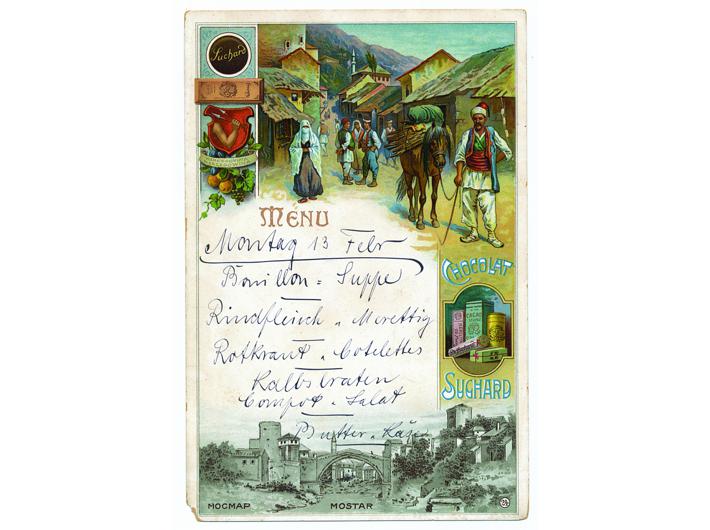 Suchard
MÉNU
Montag 13 Febr
Bouillon = Suppe
Rindfleisch u Merettig
Rotkraut u Cotelettes
Kalbsbraten
Compot u Salat
Butter u Käse
CHOCOLAT
SUCHARD
CACAO
МОСТАР
MOSTAR